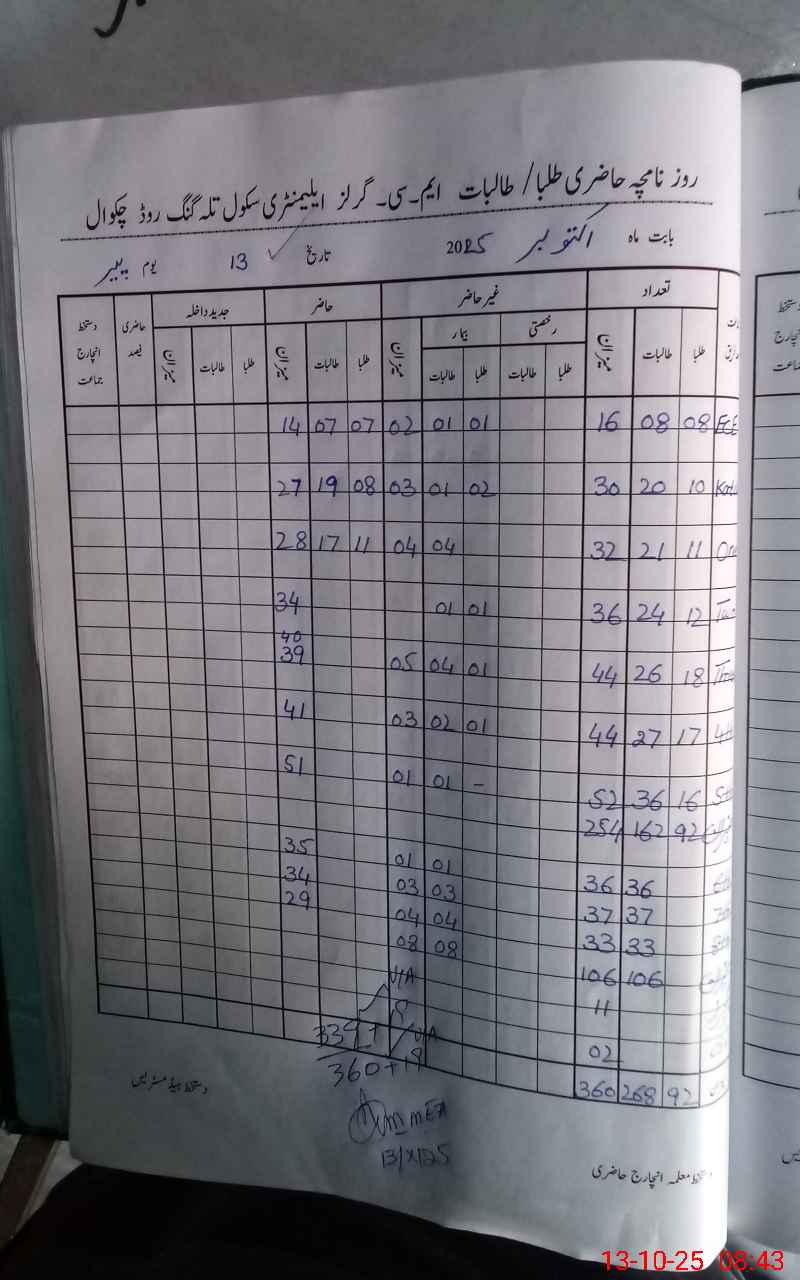 روز نامچہ حاضری طلبا/ طالبات ایم۔سی۔ گرلز ایلیمنٹری سکول تلہ گنگ روڈ چکوال
بابت ماہ اکتوبر 2025 تاریخ 13 یوم پیر
تعداد غیر حاضر حاضر جدید داخلہ حاضری فیصد دستخط انچارج جماعت
رخصتی بیمار
طلبا طالبات میزان طلبا طالبات طلبا طالبات میزان طلبا طالبات میزان طلبا طالبات میزان
ECE 08 08 16 01 01 02 07 07 14
10 20 30 02 01 03 08 19 27
11 21 32 04 04 11 17 28
12 24 36 01 01 34
40
18 26 44 01 04 05 39
17 27 44 01 02 03 41
16 36 52 - 01 01 51
92 162 254
36 36 01 01 35
37 37 03 03 34
33 33 04 04 29
106 106 08 08
11
02
92 268 360
339+
360+19
13/X/25
دستخط ہیڈ مسٹریس
دستخط معلمہ انچارج حاضری
13-10-25 08:43